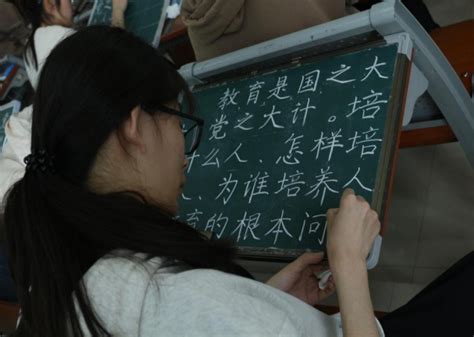 教育是国之大
党之大计。培
什么人、怎样培
人、为谁培养人
育的根本问